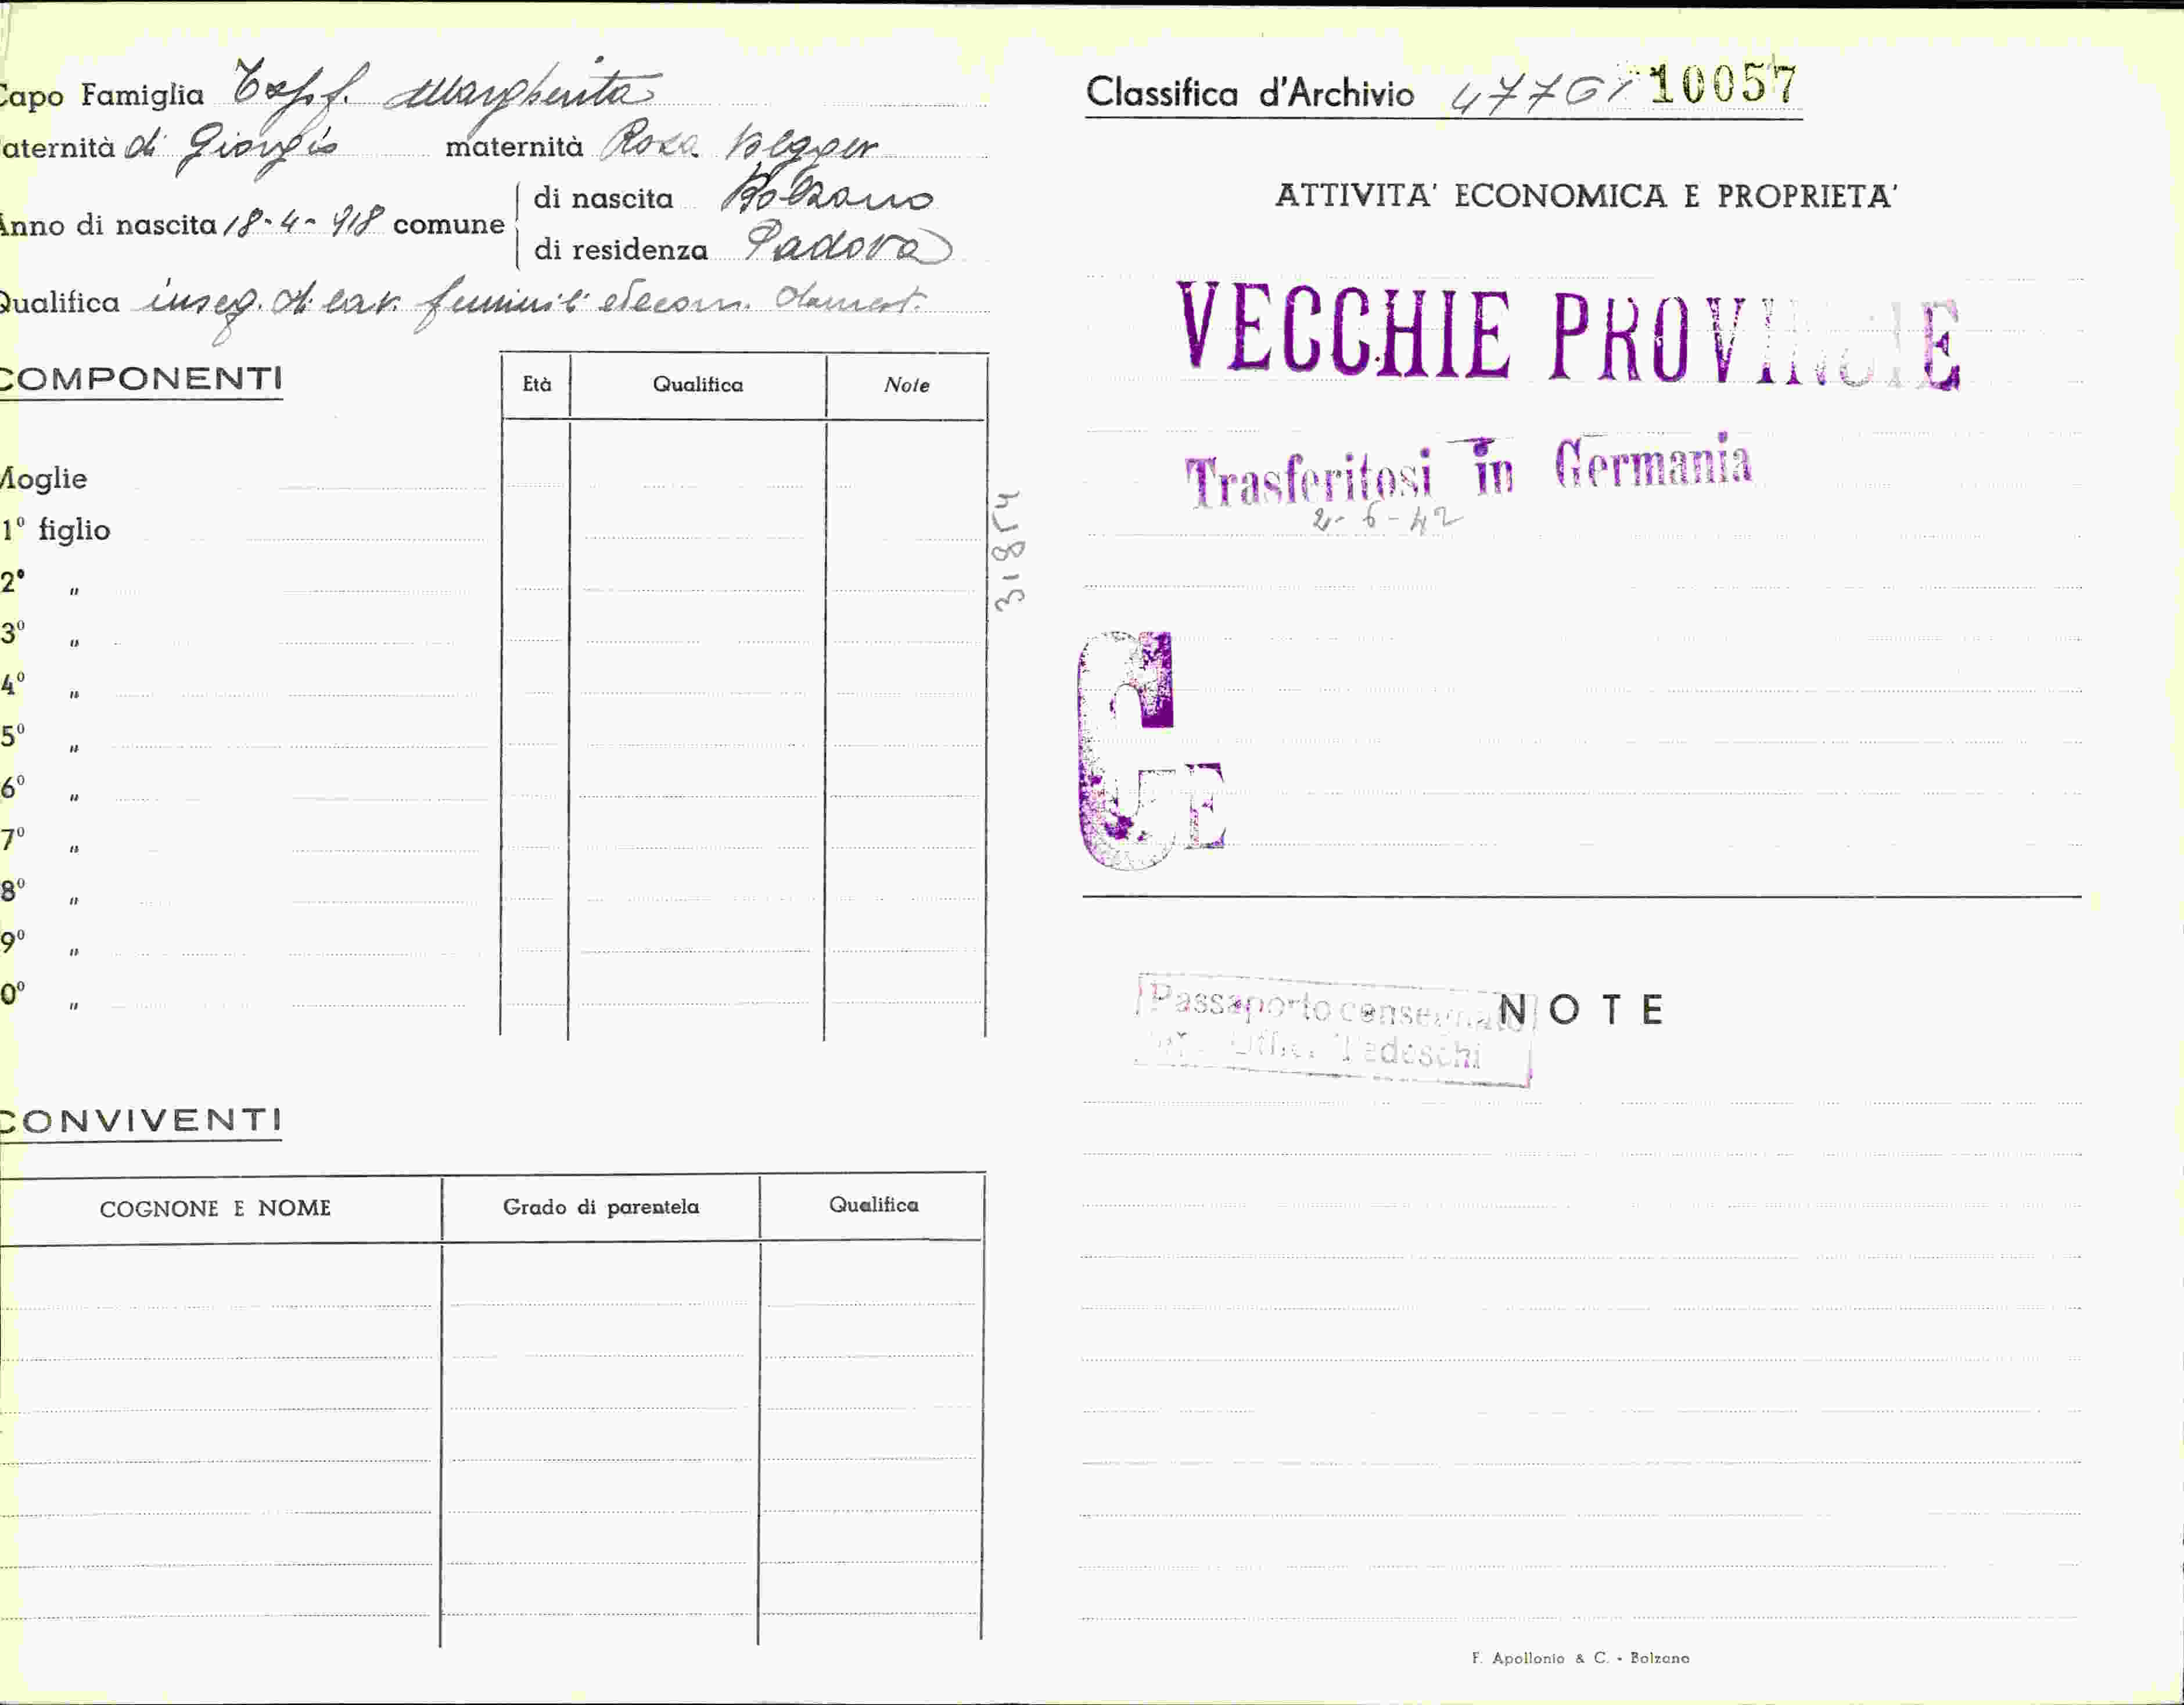 Capo Famiglia Topf. Margherita
aternità di Giorgio maternità Rosa Kegger
Anno di nascita 18-4-918 comune
di nascita Bolzano
di residenza Padova
Qualifica inseg. di lav. feminili econ. domest.
COMPONENTI
Età Qualifica Note
Moglie
1º figlio
2º "
3º "
4º "
5º "
6º "
7º "
8º "
9º "
0º "
31854
CONVIVENTI
COGNONE E NOME Grado di parentela Qualifica
Classifica d'Archivio 47761 10057
ATTIVITA' ECONOMICA E PROPRIETA'
VECCHIE PROVINCIE
Trasferitosi in Germania
2-6-42
C
E
NOTE
Passaporto consegnato
Uffici Tedeschi
F. Apollonio & C. - Bolzano